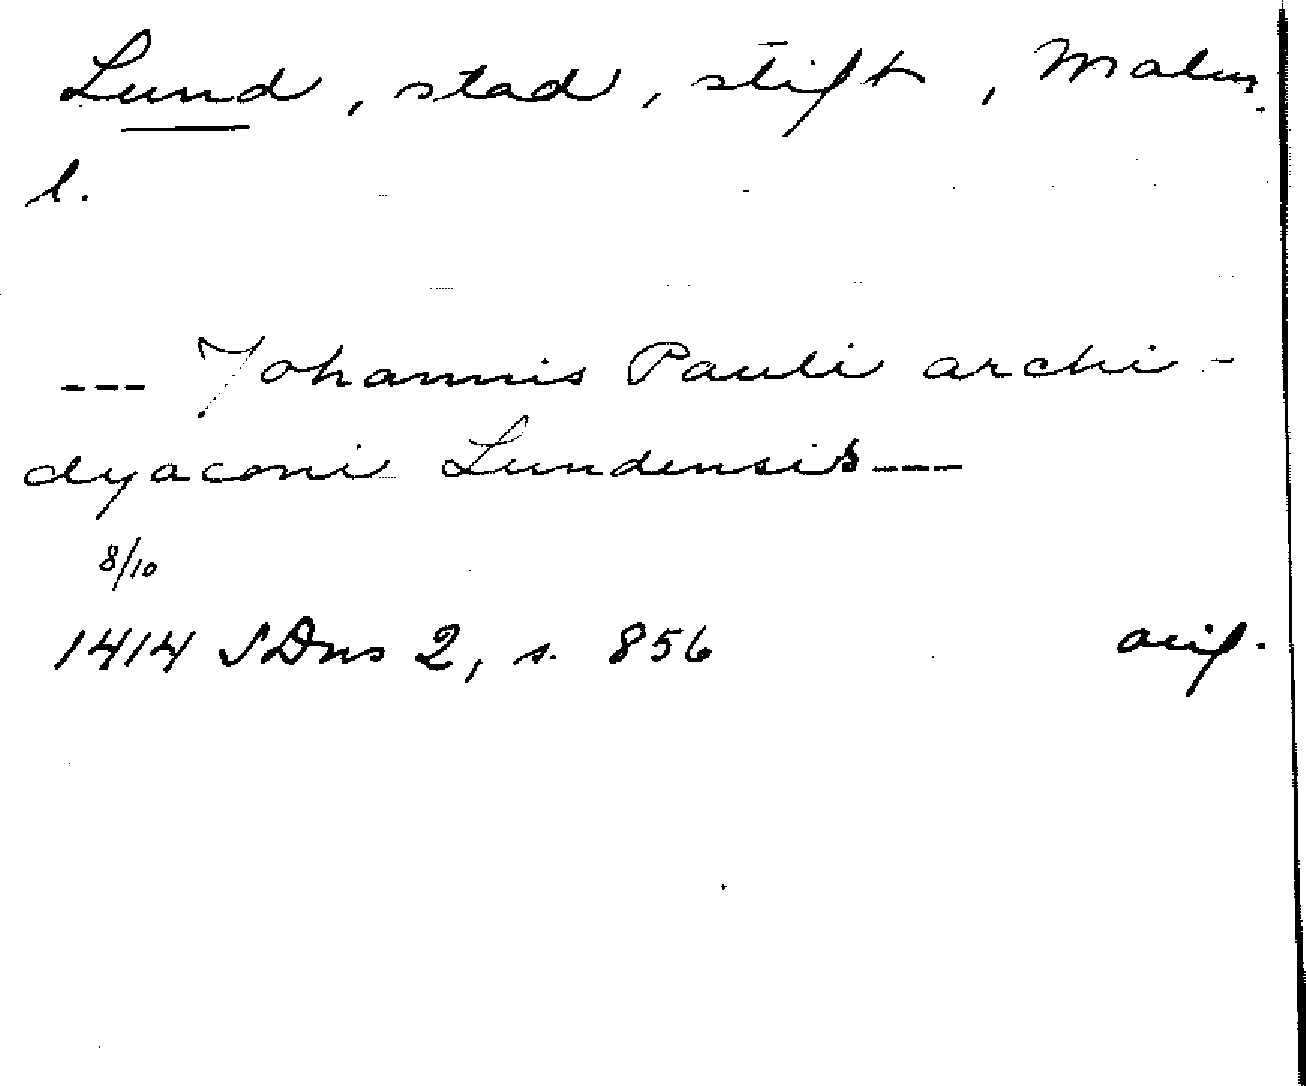 Lund, stad, stift, Malm.
l.
--- Johannis Pauli archi-
dyaconi Lundensis ---
8/10
1414 SDns 2, s. 856 avif.